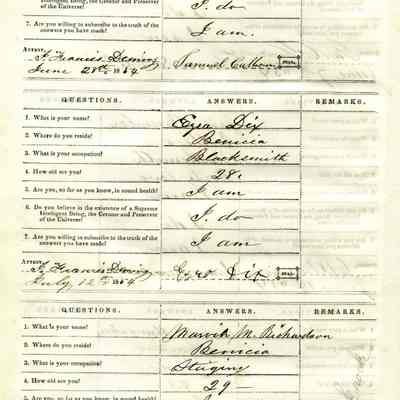 Intelligent Being, the Creator and Preserver of the Universe? I. do
7. Are you willing to subscribe to the truth of the answers you have made? I am.
ATTEST,
J. Francis Deming Samuel Calhoun SEAL.
June 28th 1864
QUESTIONS. ANSWERS. REMARKS.
1. What is your name? Ezra Dix
2. Where do you reside? Benicia
3. What is your occupation? Blacksmith
4. How old are you? 28.
5. Are you, so far as you know, in sound health? I am
6. Do you believe in the existence of a Supreme Intelligent Being, the Creator and Preserver of the Universe? I. do
7. Are you willing to subscribe to the truth of the answers you have made? I am
ATTEST,
J. Francis Deming Ezra Dix SEAL.
July 12th 1864
QUESTIONS. ANSWERS. REMARKS.
1. What is your name? M. Richardson
2. Where do you reside? Benicia
3. What is your occupation?
4. How old are you? 29 —
5. Are you, so far as you know, in sound health?